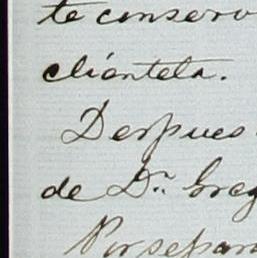 te conserv
clientela.
Despues
de Dn. Greg
Por separa